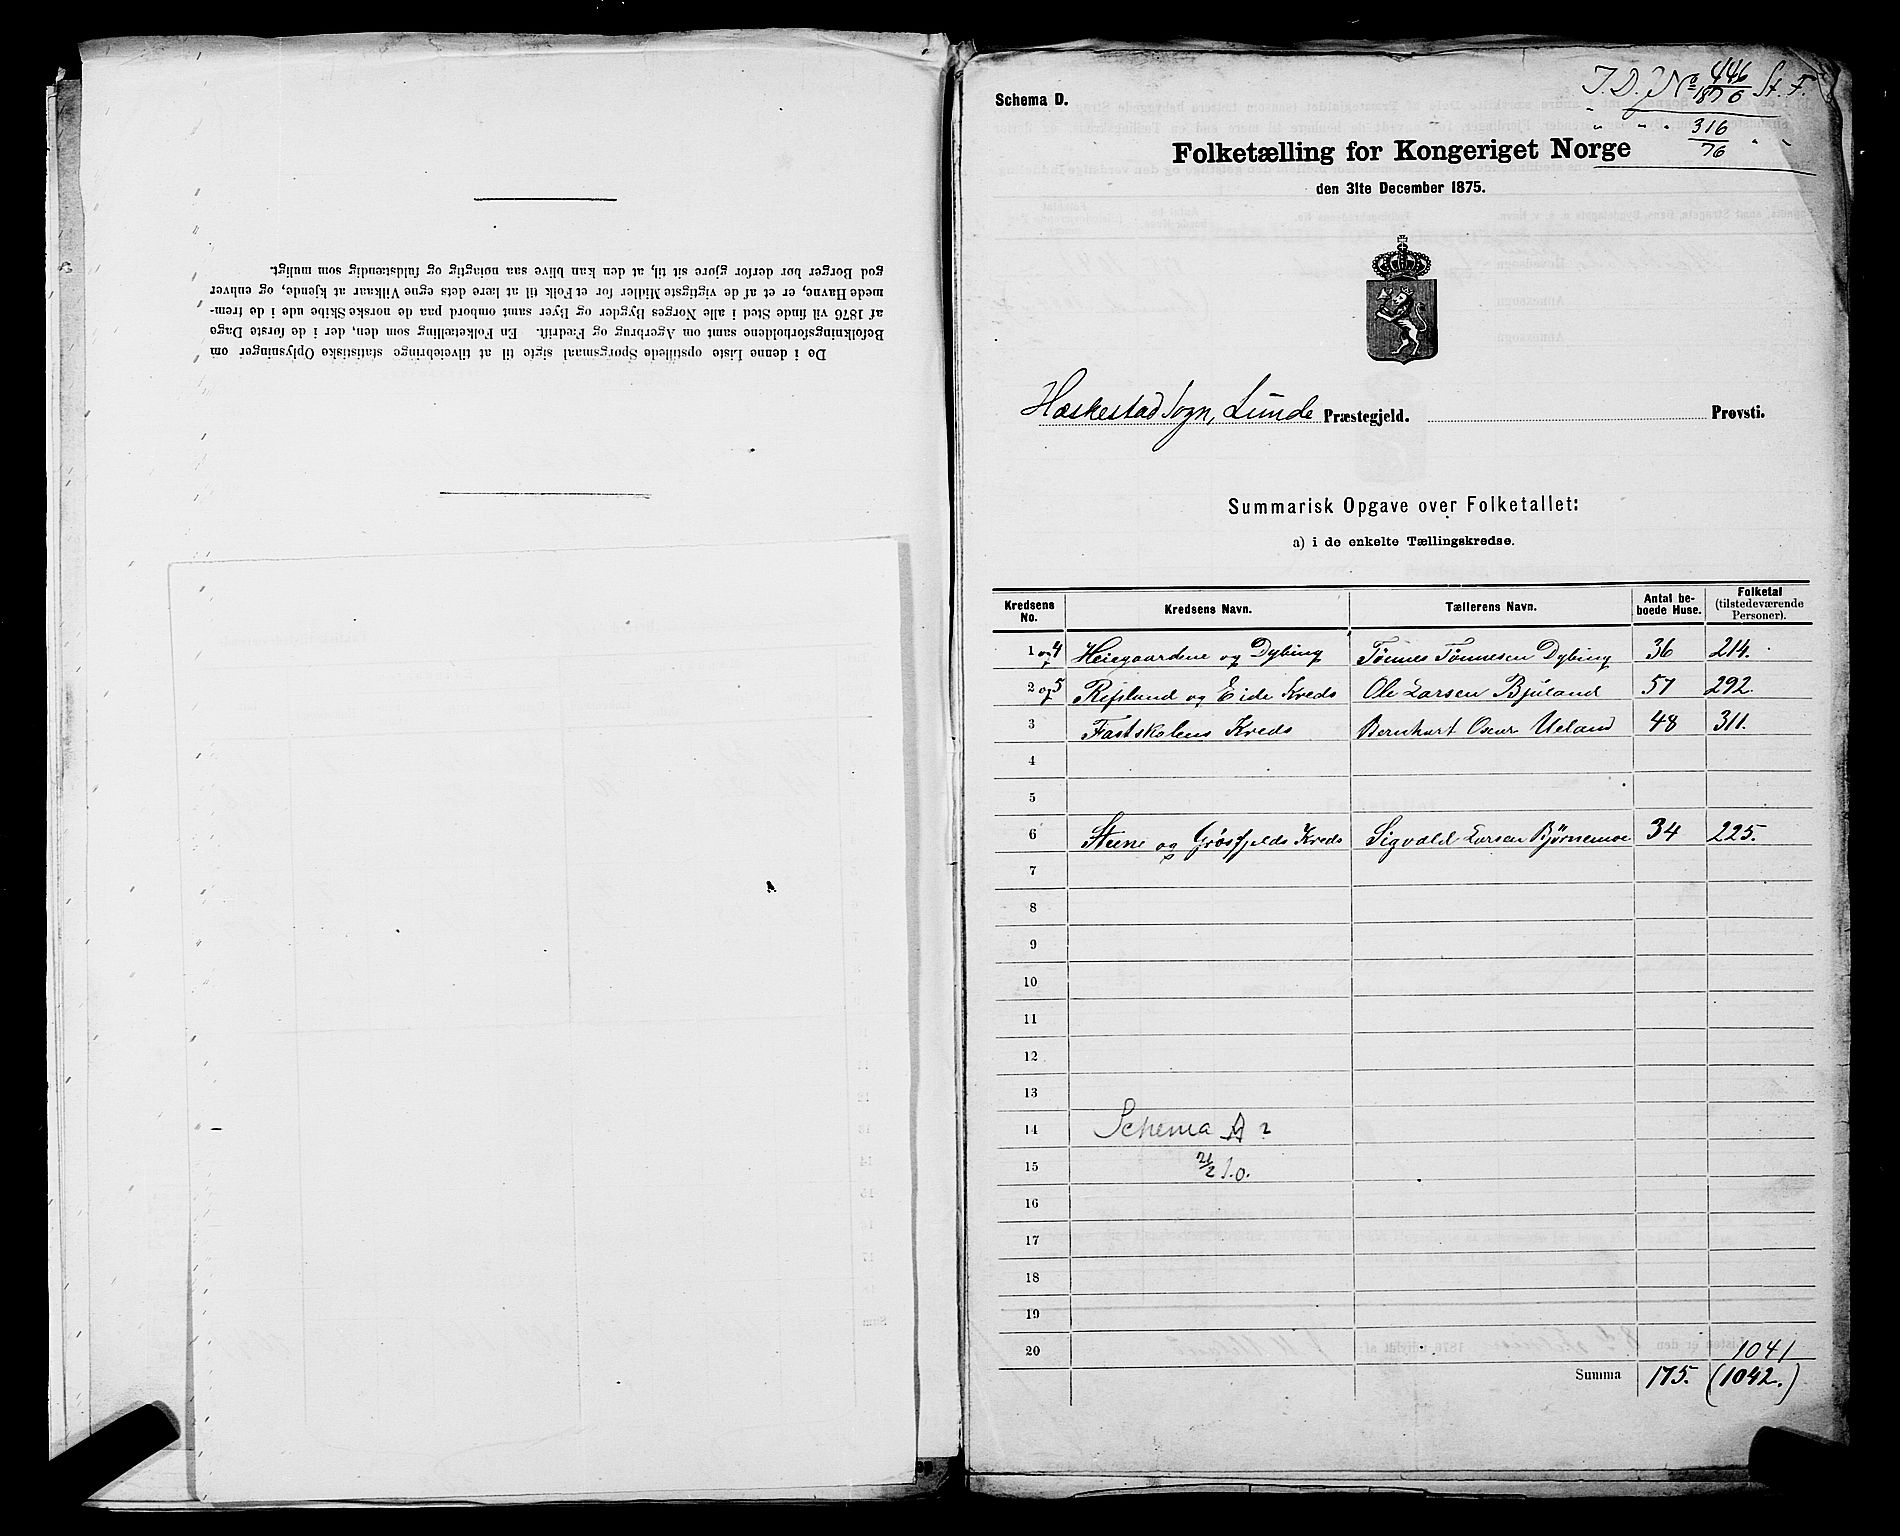 De i denne Liste opstillede Spørgsmaal sigte til at tilveiebringe statistiske Oplysninger om
Befolkningsforholdene samt om Agerbrug og Fædrift. En Folketælling som den, der i de første Dage
af 1876 vil finde Sted i alle Norges Bygder og Byer samt ombord paa de norske Skibe ude i de frem-
mede Havne, er et af de vigtigste Midler for et Folk til at lære dets egne Vilkaar at kjende, og enhver
god Borger bør derfor gjøre sit til, at den kan blive saa nøiagtig og fuldstændig som muligt.
Schema D.
J. D. J No 446/1876 St. F.
" " " 316/76 " "
Folketælling for Kongeriget Norge
den 31te December 1875.
Heskestad Sogn, Lunde Præstegjeld. Provsti.
Summarisk Opgave over Folketallet:
a) i de enkelte Tællingskredse.
Kredsens No. Kredsens Navn. Tællerens Navn. Antal beboede Huse. Folketal (tilstedeværende Personer).
1 og 4 Heiegaardene og Dybing Tønnes Tønnesen Dybing 36 214.
2 og 5 Refsland og Eide Kreds Ole Larsen Bjuland 57 292.
3 Fastskolens Kreds Bernhart Oscar Ueland 48 311.
4
5
6 Steene og Grøsfjelds Kreds Sigvald Larsen Bjørnemoe 34 225.
7
8
9
10
11
12
13
14 Schema A ?
15 21/2 S.O.
16
17
18
19
20 1041
Summa 175. (1042.)